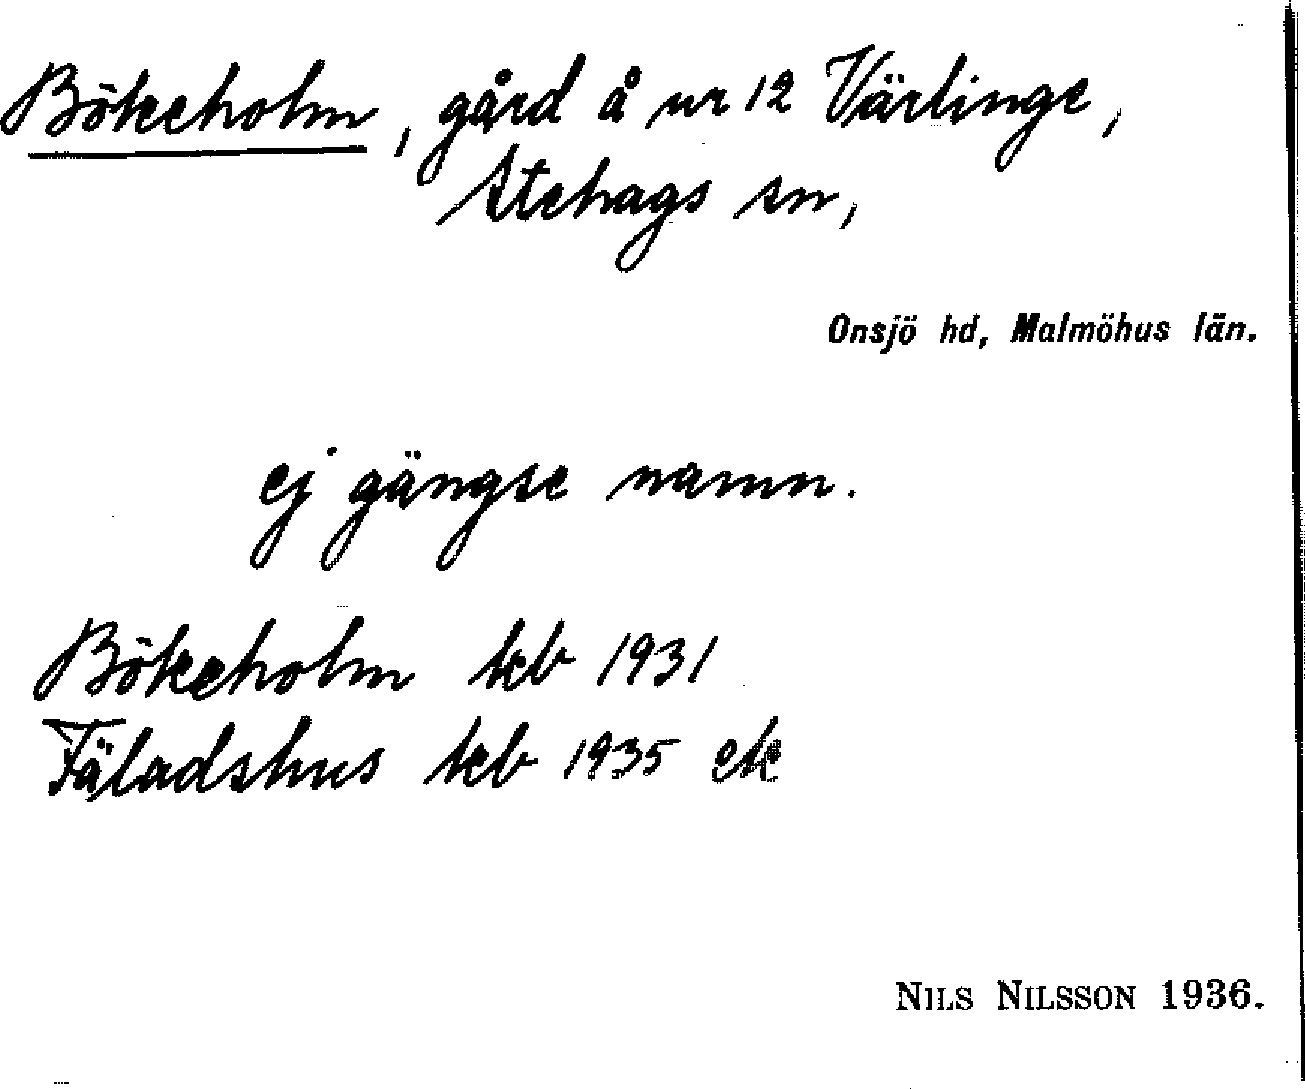 Bökeholm, gård å nr 12 Värlinge,
Stehags sn,
Onsjö hd, Malmöhus län.
ej gängse namn.
Bökeholm kb 1931
Fäladshus kb 1935 ek
NILS NILSSON 1936.